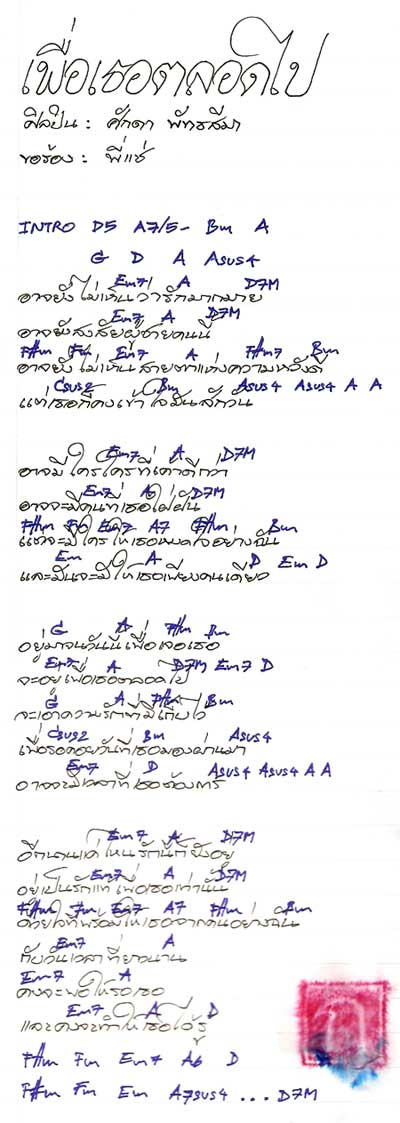 เพื่อเธอตลอดไป
ศิลปิน : ศักดา พัทธสีมา
ขอร้อง : พี่แช่
INTRO D5 A7/5- Bm A
G D A Asus4
Em7 A D7M
อาจยังไม่เห็นว่ารักมากมาย
Em7 A D7M
อาจยังสงสัยผู้ชายคนนี้
F#m Fm Em7 A F#m7 Bm
อาจยังไม่เห็นสายตาแห่งความหวังดี
Csus2 Bm Asus4 Asus4 A A
แต่เธอก็คงเข้าใจมันสักวัน
Em7 A D7M
อาจมีใครใครที่เค้าดีกว่า
Em7 A D7M
อาจจะมีคนที่เธอใฝ่ฝัน
F#m Fm Em7 A7 F#m Bm
แต่จะมีใครให้เธอหมดใจอย่างฉัน
Em A D Em D
และมันจะมีให้เธอเพียงคนเดียว
G A F#m Bm
อยู่มาจนวันนี้เพื่อเจอเธอ
Em7 A D7M Em7 D
จะอยู่เพื่อเธอตลอดไป
G A F#m Bm
จะเอาความรักที่มีเก็บไว้
Csus2 Bm Asus4
เพื่อรอคอยวันที่เธอมองผ่านมา
Em7 D Asus4 Asus4 A A
อาจจะมีเวลาที่เธอต้องการ
Em7 A D7M
อีกนานแค่ไหนรักนี้ก็ยังอยู่
Em7 A D7M
อยู่เป็นรักแท้เพื่อเธอเท่านั้น
F#m Fm Em7 A7 F#m Bm
ด้วยใจที่พร้อมให้เธอจากคนอย่างฉัน
Em7 A
กับวันเวลาที่ยาวนาน
Em7 A
คงจะพอให้รอเธอ
Em7 A D
และคงจะทำให้เธอได้รู้
F#m Fm Em7 A6 D
F#m Fm Em A7sus4 ... D7M